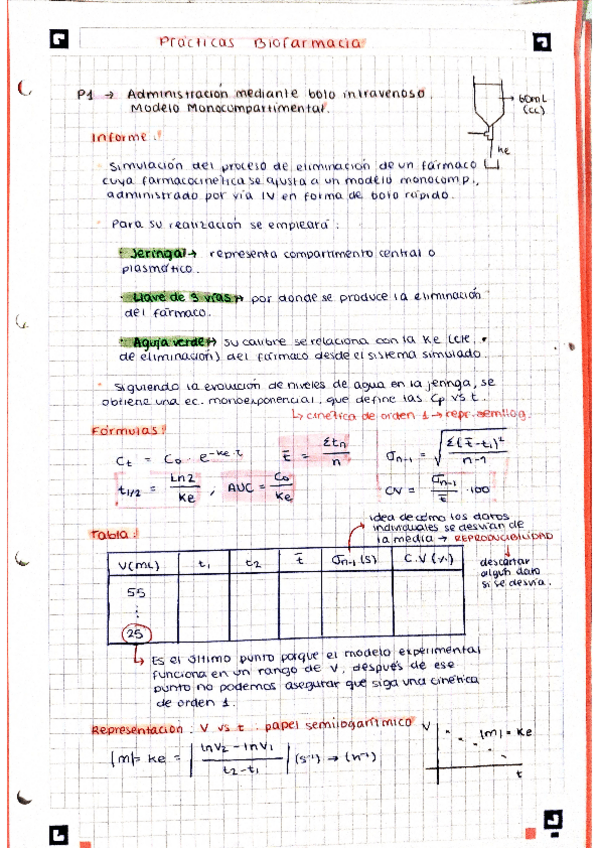 Prácticas Biofarmacia
P1 → Administración mediante bolo intravenoso.
Modelo Monocompartimental.
60mL
(CC)
Ke
Informe:
· Simulación del proceso de eliminación de un fármaco
cuya farmacocinética se ajusta a un modelo monocomp.,
administrado por vía IV en forma de bolo rápido.
· Para su realización se empleará:
· Jeringa → representa compartimento central o
plasmático.
· Llave de 3 vías → por donde se produce la eliminación
del fármaco.
· Aguja verde → su calibre se relaciona con la Ke (cte.
de eliminación) del fármaco desde el sistema simulado.
· Siguiendo la evolución de niveles de agua en la jeringa, se
obtiene una ec. monoexponencial, que define las Cp vs t.
↳ cinética de orden 1 → repr. semilog.
Fórmulas:
Ct = C₀ · e^-Ke·t
t̄ = Σtn / n
σn-1 = √(Σ(t̄-t₁)² / n-1)
t1/2 = Ln2 / Ke ; AUC = C₀ / Ke
CV = σn-1 / t̄ · 100
idea de cómo los datos
individuales se desvían de
la media → REPRODUCIBILIDAD
descartar
algún dato
si se desvía.
Tabla:
V(mL) t₁ t₂ t̄ σn-1 (s) C.V (%)
55
⋮
25
↳ Es el último punto porque el modelo experimental
funciona en un rango de V, después de ese
punto no podemos asegurar que siga una cinética
de orden 1.
Representación: V vs t : papel semilogarítmico
|m|= Ke = | lnV₂ - lnV₁ / t₂-t₁ | (s⁻¹) → (h⁻¹)
V
|m| = Ke
t